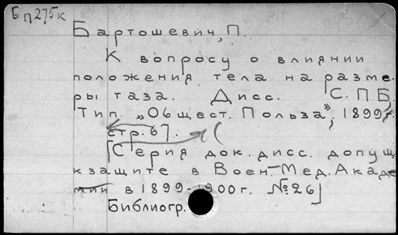 Бп275к
Бартошевич, П.
К вопросу о влиянии
положения тела на разме-
ры таза. Дисс. С.П.Б,
Тип. „Общест. Польза", 1899г.
стр. 67. (
[Серия док. дисс. допущ
к защите в Воен-Мед. Акаде
мии в 1899-1900г. №26]
Библиогр.